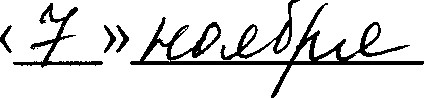 «7» ноября